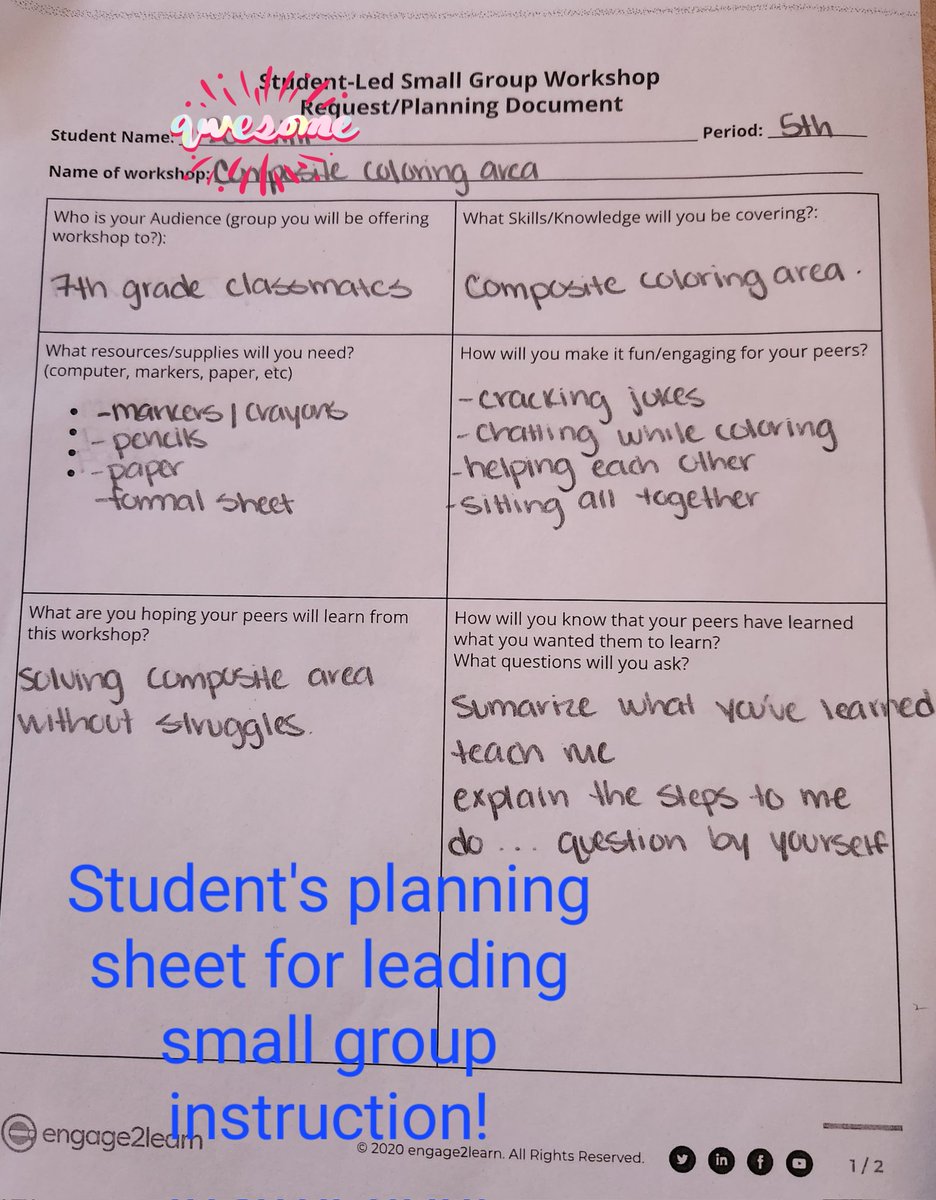 Student-Led Small Group Workshop
Request/Planning Document
Student Name:
awesome
Period: 5th
Name of workshop: Composite coloring area
Who is your Audience (group you will be offering
workshop to?):
7th grade classmates
What Skills/Knowledge will you be covering?:
composite coloring area.
What resources/supplies will you need?
(computer, markers, paper, etc)
• -markers/crayons
• -pencils
• -paper
• -formal sheet
How will you make it fun/engaging for your peers?
-cracking jokes
-chatting while coloring
-helping each other
-sitting all together
What are you hoping your peers will learn from
this workshop?
solving composite area
without struggles.
How will you know that your peers have learned
what you wanted them to learn?
What questions will you ask?
sumarize what you've learned
teach me
explain the steps to me
do ... question by yourself
Student's planning
sheet for leading
small group
instruction!
engage2learn
© 2020 engage2learn. All Rights Reserved.
in f
1 / 2